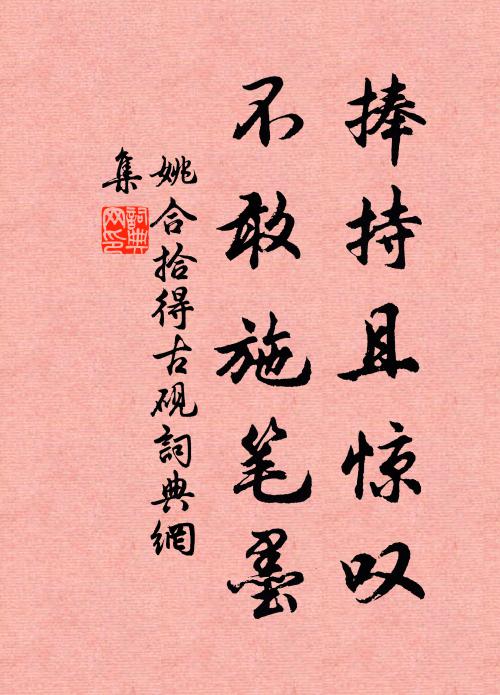 捧持且惊叹
不敢施笔墨
姚合拾得古砚詞典網
集
詞典網印